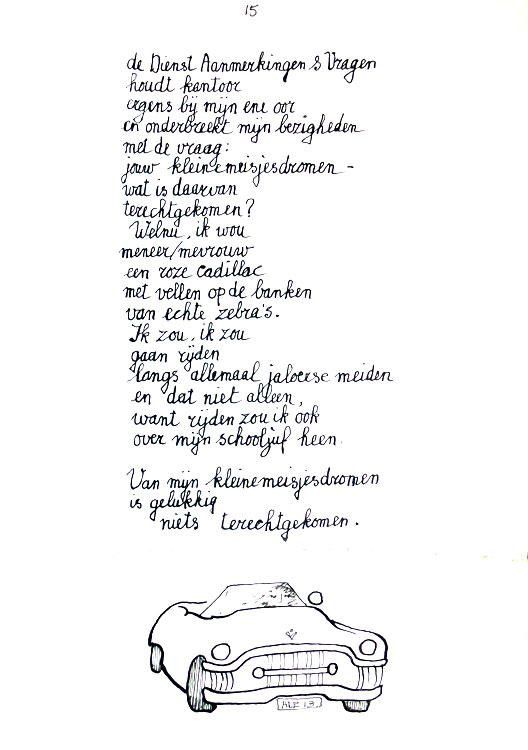 15
de Dienst Aanmerkingen & Vragen
houdt kantoor
ergens bij mijn ene oor
en onderbreekt mijn bezigheden
met de vraag:
jouw kleinemeisjesdromen -
wat is daarvan
terechtgekomen?
Welnu, ik wou
meneer/mevrouw
een roze cadillac
met vellen op de banken
van echte zebra's.
Ik zou, ik zou
gaan rijden
langs allemaal jaloerse meiden
en dat niet alleen,
want rijden zou ik ook
over mijn schooljuf heen.
Van mijn kleinemeisjesdromen
is gelukkig
niets terechtgekomen.